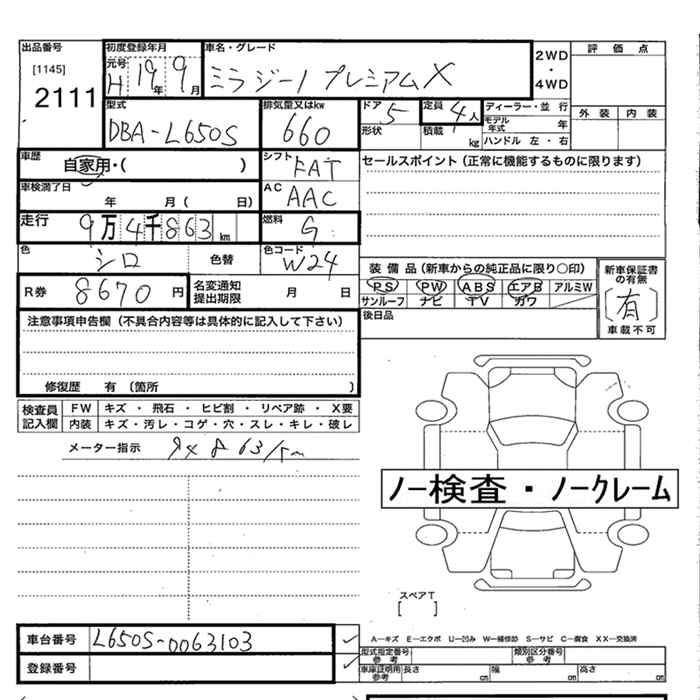 出品番号 [1145] 2111
初度登録年月 元号 H 19年 9月
車名・グレード ミラジーノ プレミアムX
2WD・4WD
評価点
外装 内装
型式 DBA-L650S
排気量又はkw 660
ドア 5
形状
定員 4人
積載 kg
ディーラー・並行
モデル年式 年
ハンドル 左・右
車歴 自家用・( )
シフト FAT
セールスポイント (正常に機能するものに限ります)
車検満了日 年 月 ( 日)
AC AAC
走行 9万4千863km
燃料 G
色 シロ 色替
色コード W24
装備品 (新車からの純正品に限り○印)
PS PW ABS エアB アルミW
サンルーフ ナビ TV カワ
新車保証書の有無
[有]
車載不可
R券 8670円
名変通知提出期限 月 日
後日品
注意事項申告欄 (不具合内容等は具体的に記入して下さい)
修復歴 有 (箇所 )
検査員記入欄
FW キズ・飛石・ヒビ割・リペア跡・X要
内装 キズ・汚レ・コゲ・穴・スレ・キレ・破レ
メーター指示 94863km
ノー検査・ノークレーム
スペアT
[ ]
車台番号 L650S-0063103
登録番号
A―キズ E―エクボ U―凹み W―補修跡 S―サビ C―腐食 XX―交換済
型式指定番号 参考
類別区分番号 参考
車庫証明用 参考 長さ cm 幅 cm 高さ cm